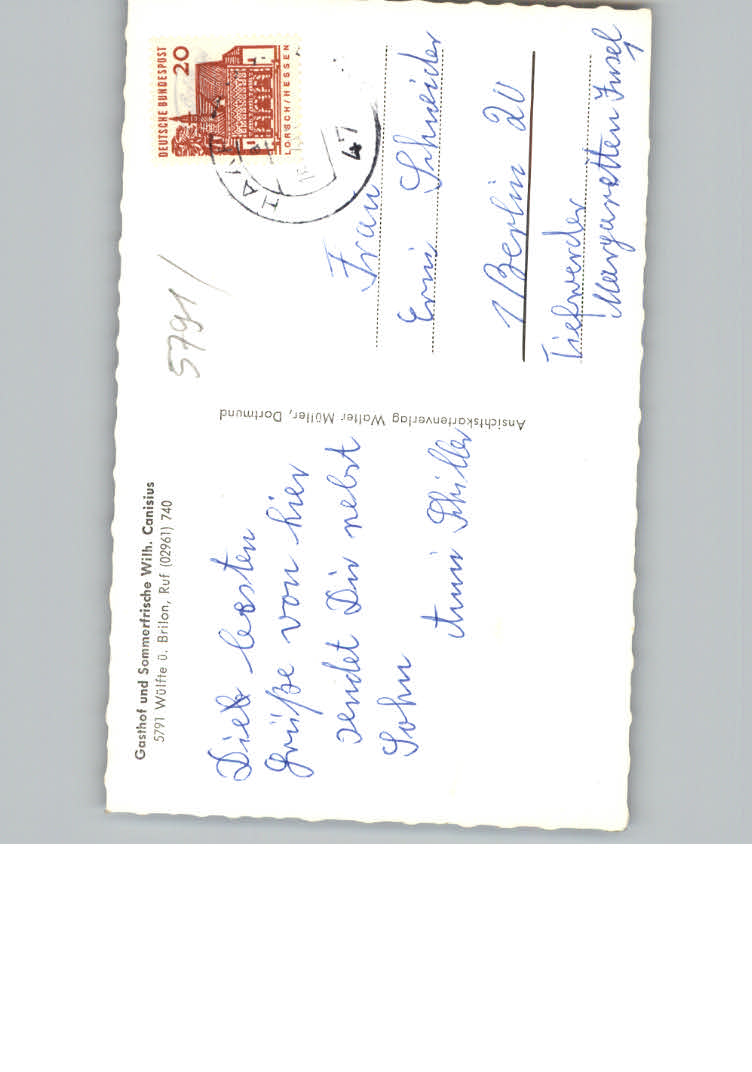 Gasthof und Sommerfrische Wilh. Canisius
5791 Wülfte ü. Brilon, Ruf (02961) 740
besten
Grüße von hier
sendet Dir nebst
Sohn
Anni Schiller
Ansichtskartenverlag Walter Müller, Dortmund
5791/
DEUTSCHE BUNDESPOST
20
LORSCH/HESSEN
47
Frau
Erni Schneider
1 Berlin 20
Tiefwerder
Margareten Insel
1